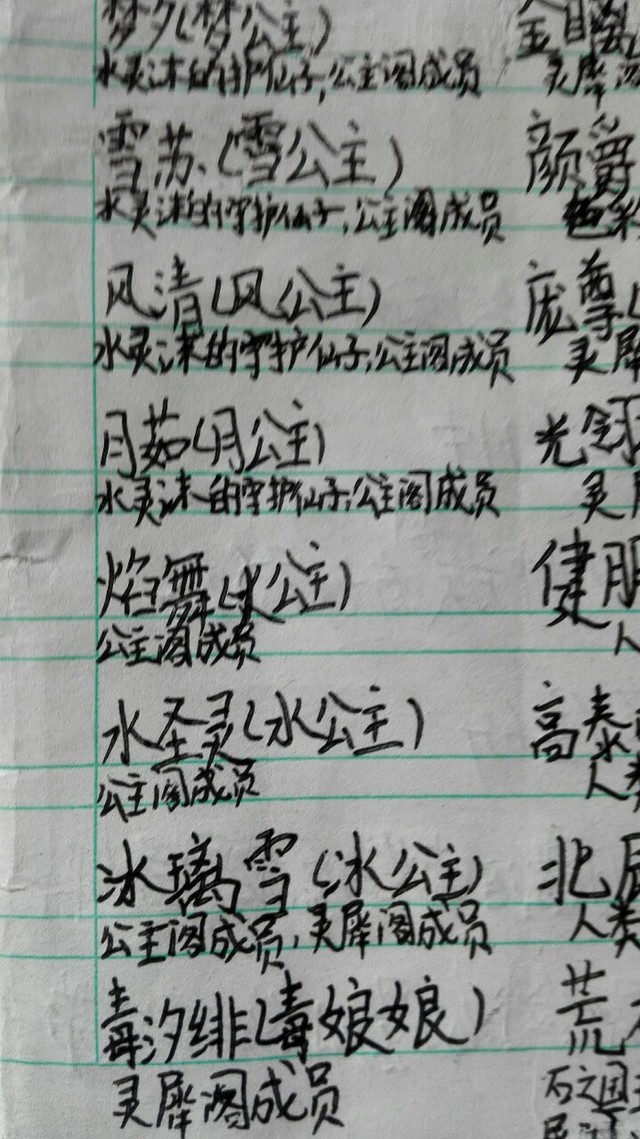 梦夕(梦公主)
水灵沫的守护仙子,公主阁成员
雪苏(雪公主)
水灵沫的守护仙子,公主阁成员
风清(风公主)
水灵沫的守护仙子,公主阁成员
月茹(月公主)
水灵沫的守护仙子,公主阁成员
焰舞(火公主)
公主阁成员
水圣灵(水公主)
公主阁成员
冰璃雪(冰公主)
公主阁成员,灵犀阁成员
毒汐绯(毒娘娘)
灵犀阁成员
灵犀阁
颜爵
庞尊(
灵犀
光
灵
健
人
高泰
人类
北辰
人类
荒
石之国